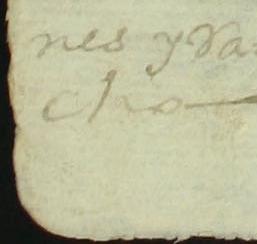 nes y Va=
cho